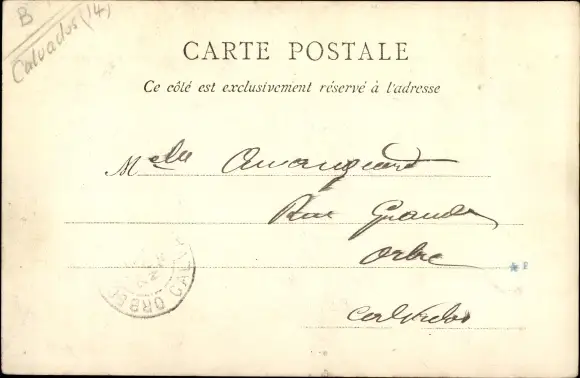 B
Calvados (14)
CARTE POSTALE
Ce côté est exclusivement réservé à l'adresse
Melle
Rue Grande
Orbec
Calvados
ORBEC CALV